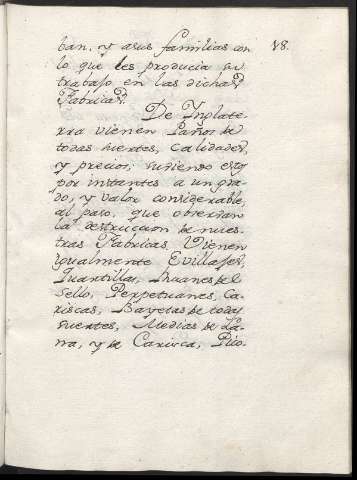 ban, y asus familias con
18.
lo que les producia su
trabajo en las dichas
Fabricas.
De Inglate-
rra vienen Paños de
todas suertes, Calidades,
y precios, subiendo estos
por instantes a un gra-
do, y valor considerable,
al paso, que observan
la destruccion de nues-
tras Fabricas. Vienen
igualmente
Quartillas, de el
Sello, Perpetuanes, Ca-
riscas, Bayetas de todas
suertes, Medias de La-
na, y de Carisea, Pico-